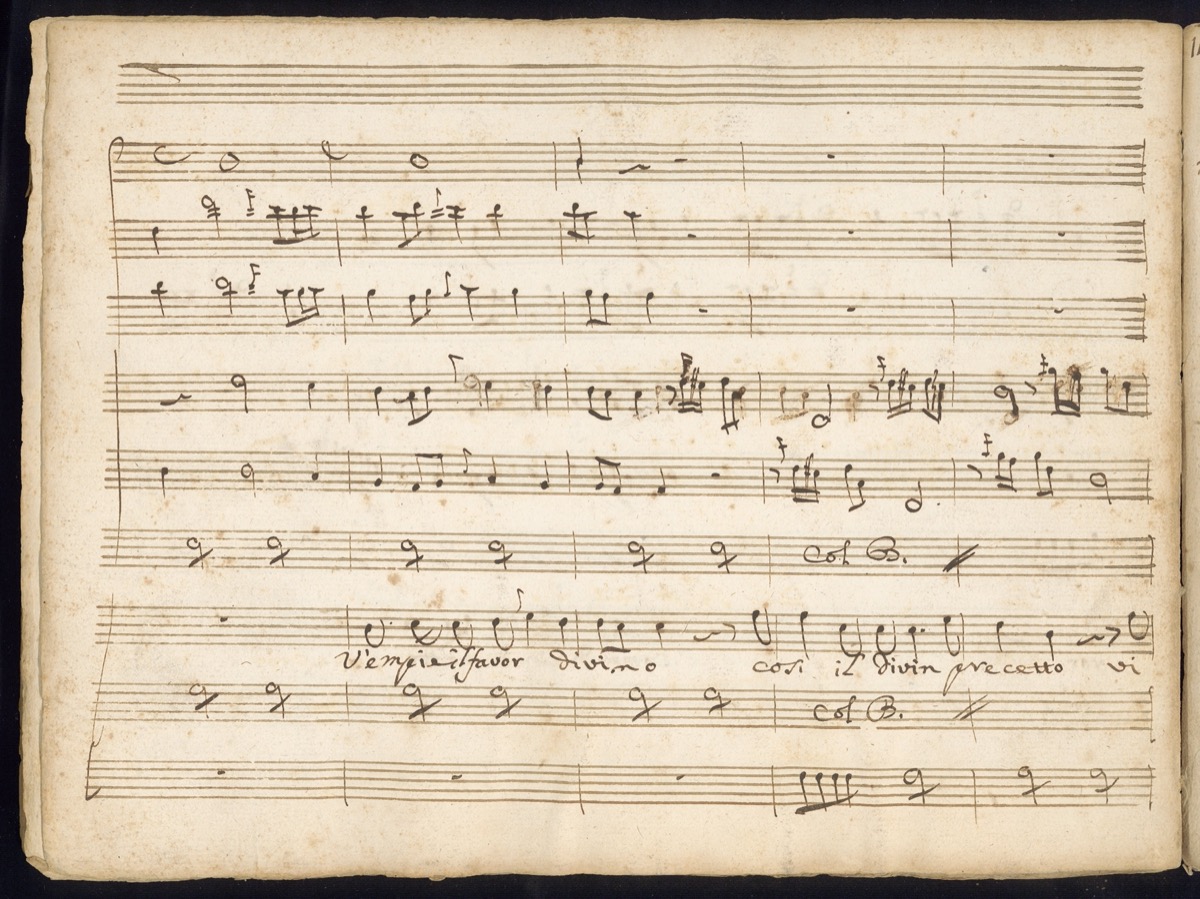 Col B.
V'empie il favor divino così il divin precetto vi
col B.